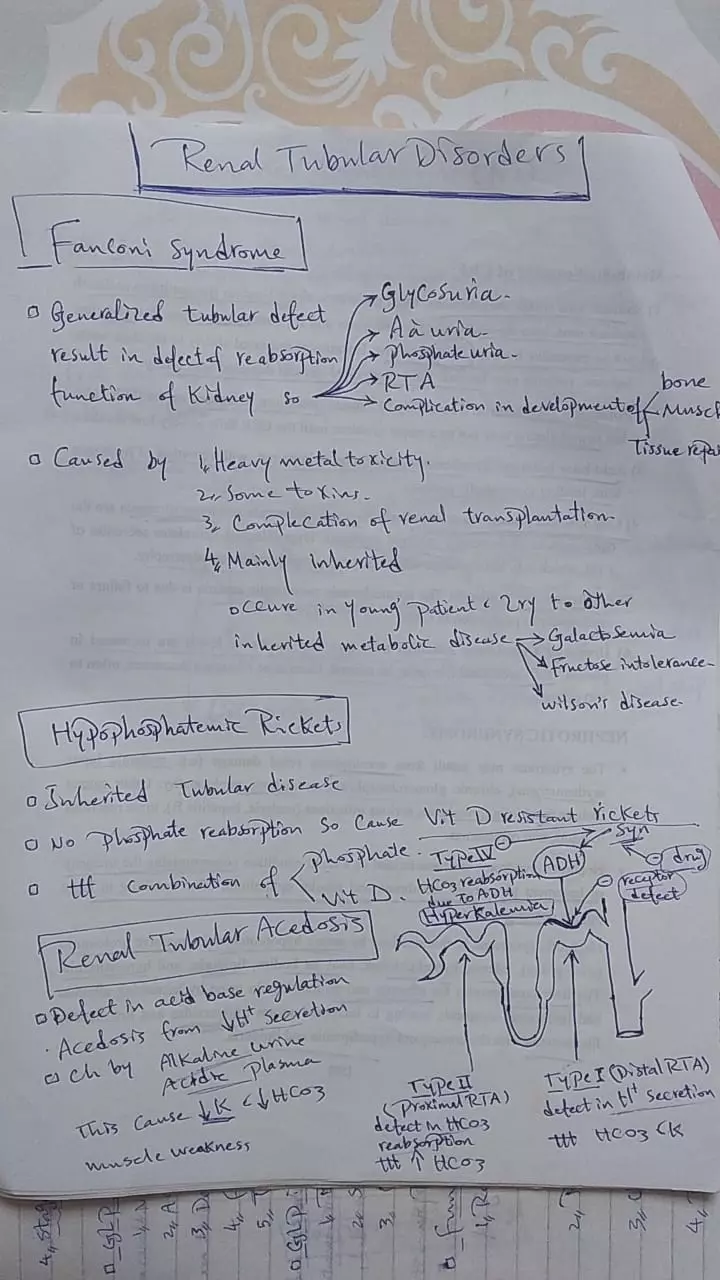 Renal Tubular Disorders
Fanconi Syndrome
Generalized tubular defect
result in defect of reabsorption
function of Kidney so
Glycosuria.
Aa uria.
Phosphate uria.
RTA
Complication in development of
bone
Muscl
Tissue repai
Caused by 1, Heavy metal toxicity.
2, Some toxins.
3, Complecation of renal transplantation.
4, Mainly inherited
occure in young patient < 2ry to other
inherited metabolic disease
Galactosemia
Fructose intolerance
Wilson's disease.
Hypophosphatemic Rickets
Inherited Tubular disease
No phosphate reabsorption so Cause Vit D resistant rickets
ttt combination of
phosphate.
Vit D.
Type IV
HCO3 reabsorption
due to ADH
Hyperkalemia
ADH
Syn
drug
receptor
defect
Renal Tubular Acedosis
Defect in acid base regulation
Acedosis from ↓H+ secretion
ch by Alkaline urine
Acidic plasma
This cause ↓K < ↓HCO3
muscle weakness
Type II
(Proximal RTA)
defect in HCO3
reabsorption
ttt ↑ HCO3
Type I (Distal RTA)
defect in H+ secretion
ttt HCO3 < K